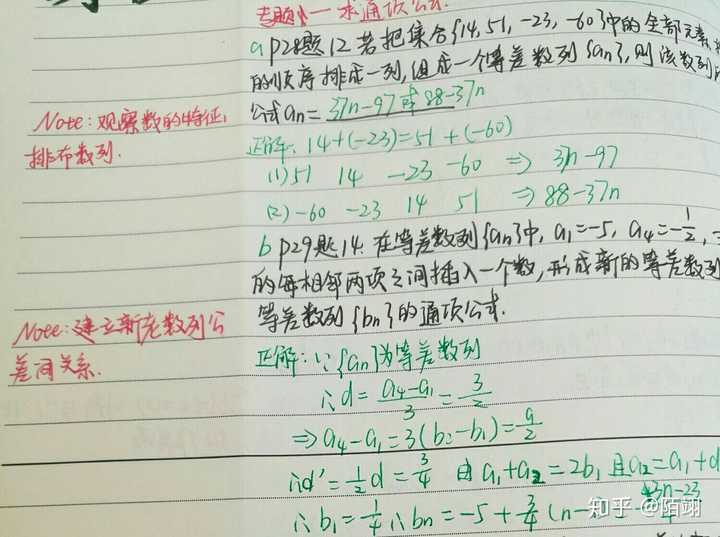 专题一 求通项公式.
a P28题12 若把集合{14, 51, -23, -60}中的全部元素
的顺序排成一列, 组成一个等差数列{an}, 则该数列
公式an= 37n-97或88-37n
Note: 观察数的特征,
排布数列.
正解: 14+(-23)=51+(-60)
(1) 51 14 -23 -60 ⇒ 37n-97
(2) -60 -23 14 51 ⇒ 88-37n
b P29题14. 在等差数列{an}中, a₁=-5, a₄=-1/2,
的每相邻两项之间插入一个数, 形成新的等差数列
等差数列{bn}的通项公式.
Note: 建立新老数列公
差间关系.
正解: ∵{an}为等差数列
∴d = (a₄-a₁)/3 = 3/2
⇒ a₄-a₁=3(b₂-b₁)=9/2
∴d'=1/2d=3/4 由a₁+a₂=2b₁且a₂=a₁+d
∴b₁=1/4 ∴bn=-5+3/4(n-
3n-23
知乎 @陌翊